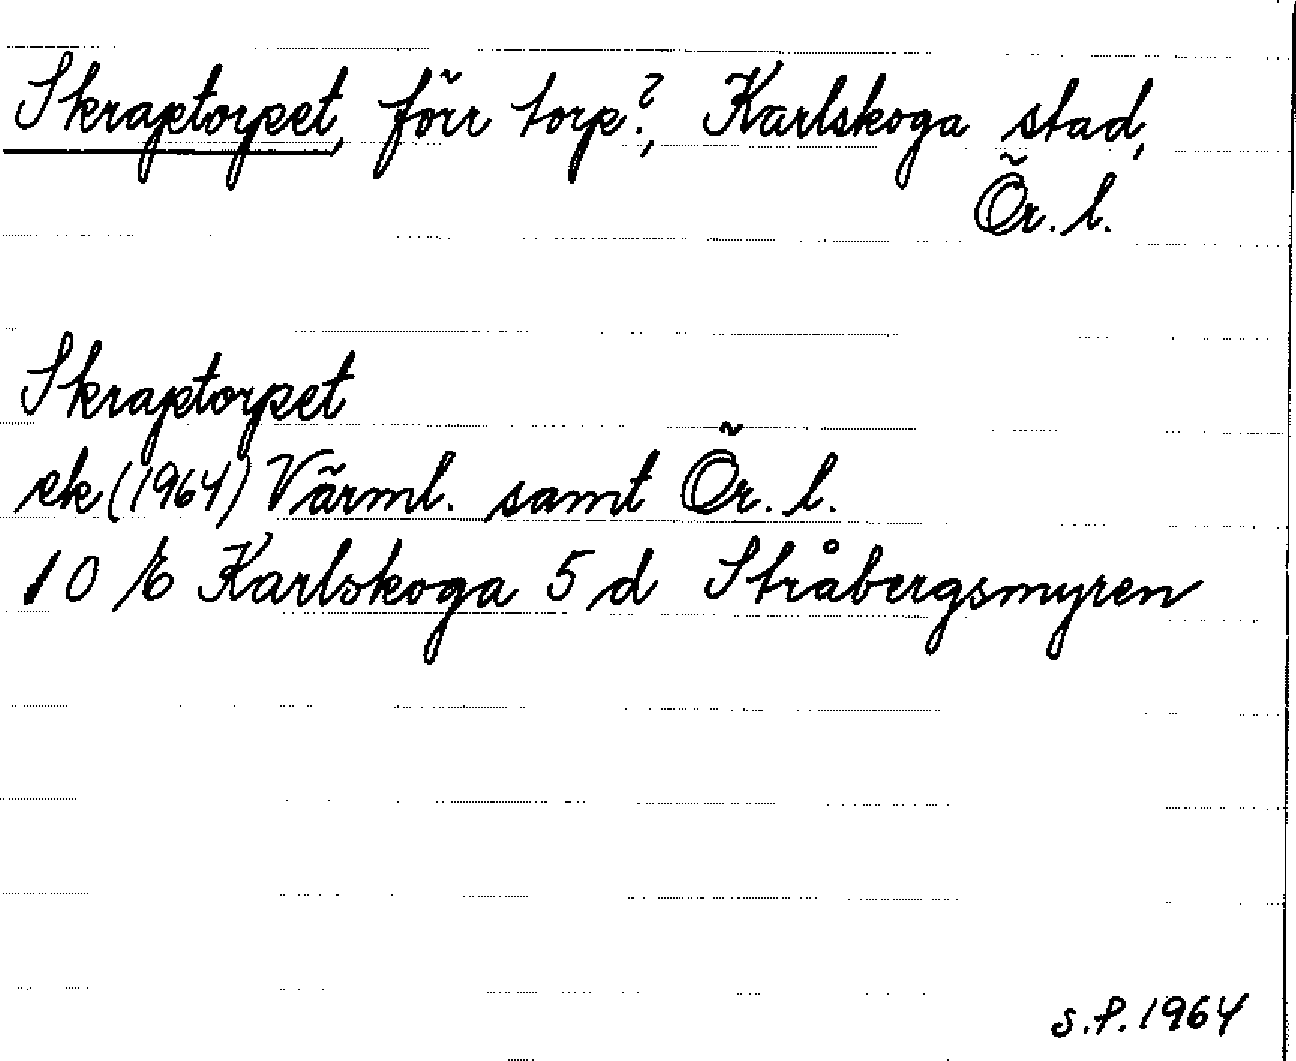 Skraptorpet, förr torp?, Karlskoga stad,
Ör. l.
Skraptorpet
ek (1964) Värml. samt Ör. l.
10 E Karlskoga 5 d Stråbergsmyren
S.P. 1964